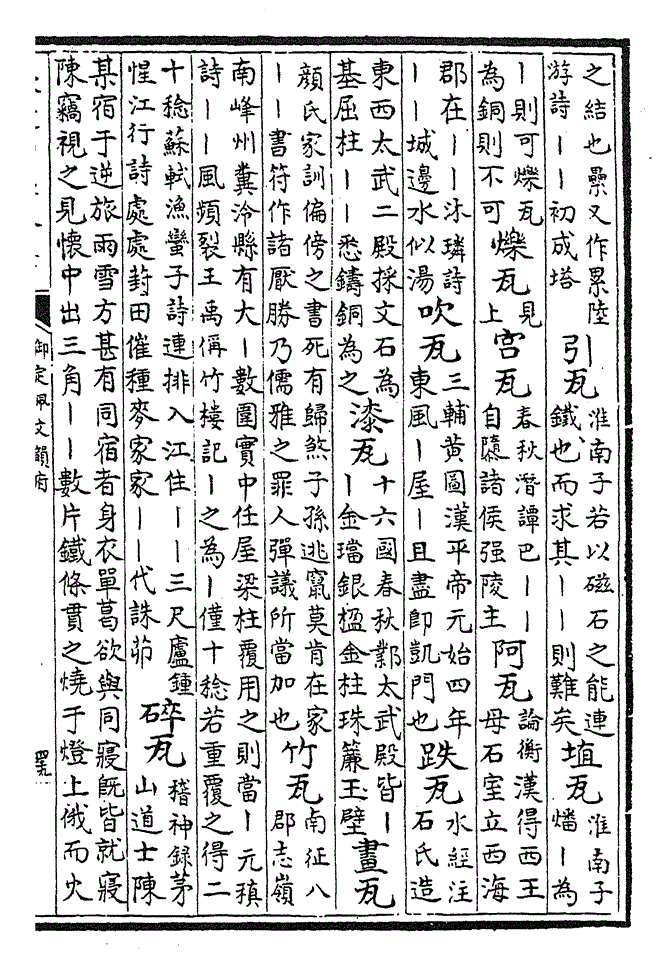 之結也纍又作累陸
游詩——初成塔
引瓦
淮南子若以磁石之能連
鐵也而求其——則難矣
埴瓦
淮南子
燔—為
—則可爍瓦
為銅則不可
爍瓦
見
上
宮瓦
春秋潛譚巴——
自隳諸侯强陵主
阿瓦
論衡漢得西王
母石室立西海
郡在——沐璘詩
——城邊水似湯
吹瓦
三輔黃圖漢平帝元始四年
東風—屋—且盡即凱門也
跌瓦
水經注
石氏造
東西太武二殿採文石為
基屈柱——悉鑄銅為之
漆瓦
十六國春秋鄴太武殿皆—
—金璫銀楹金柱珠簾玉壁
畫瓦
顏氏家訓偏傍之書死有歸煞子孫逃竄莫肯在家
——書符作諸厭勝乃儒雅之罪人彈議所當加也
竹瓦
南征八
郡志嶺
南峰州糞泠縣有大—數圍實中任屋梁柱覆用之則當—元稹
詩——風頻裂王禹偁竹樓記—之為—僅十稔若重覆之得二
十稔蘇軾漁蠻子詩連排入江住——三尺廬鍾
惺江行詩處處葑田催種麥家家——代誅茆
碎瓦
稽神錄茅
山道士陳
某宿于逆旅雨雪方甚有同宿者身衣單葛欲與同寢既皆就寢
陳竊視之見懷中出三角——數片鐵條貫之燒于燈上俄而火
御定佩文韻府